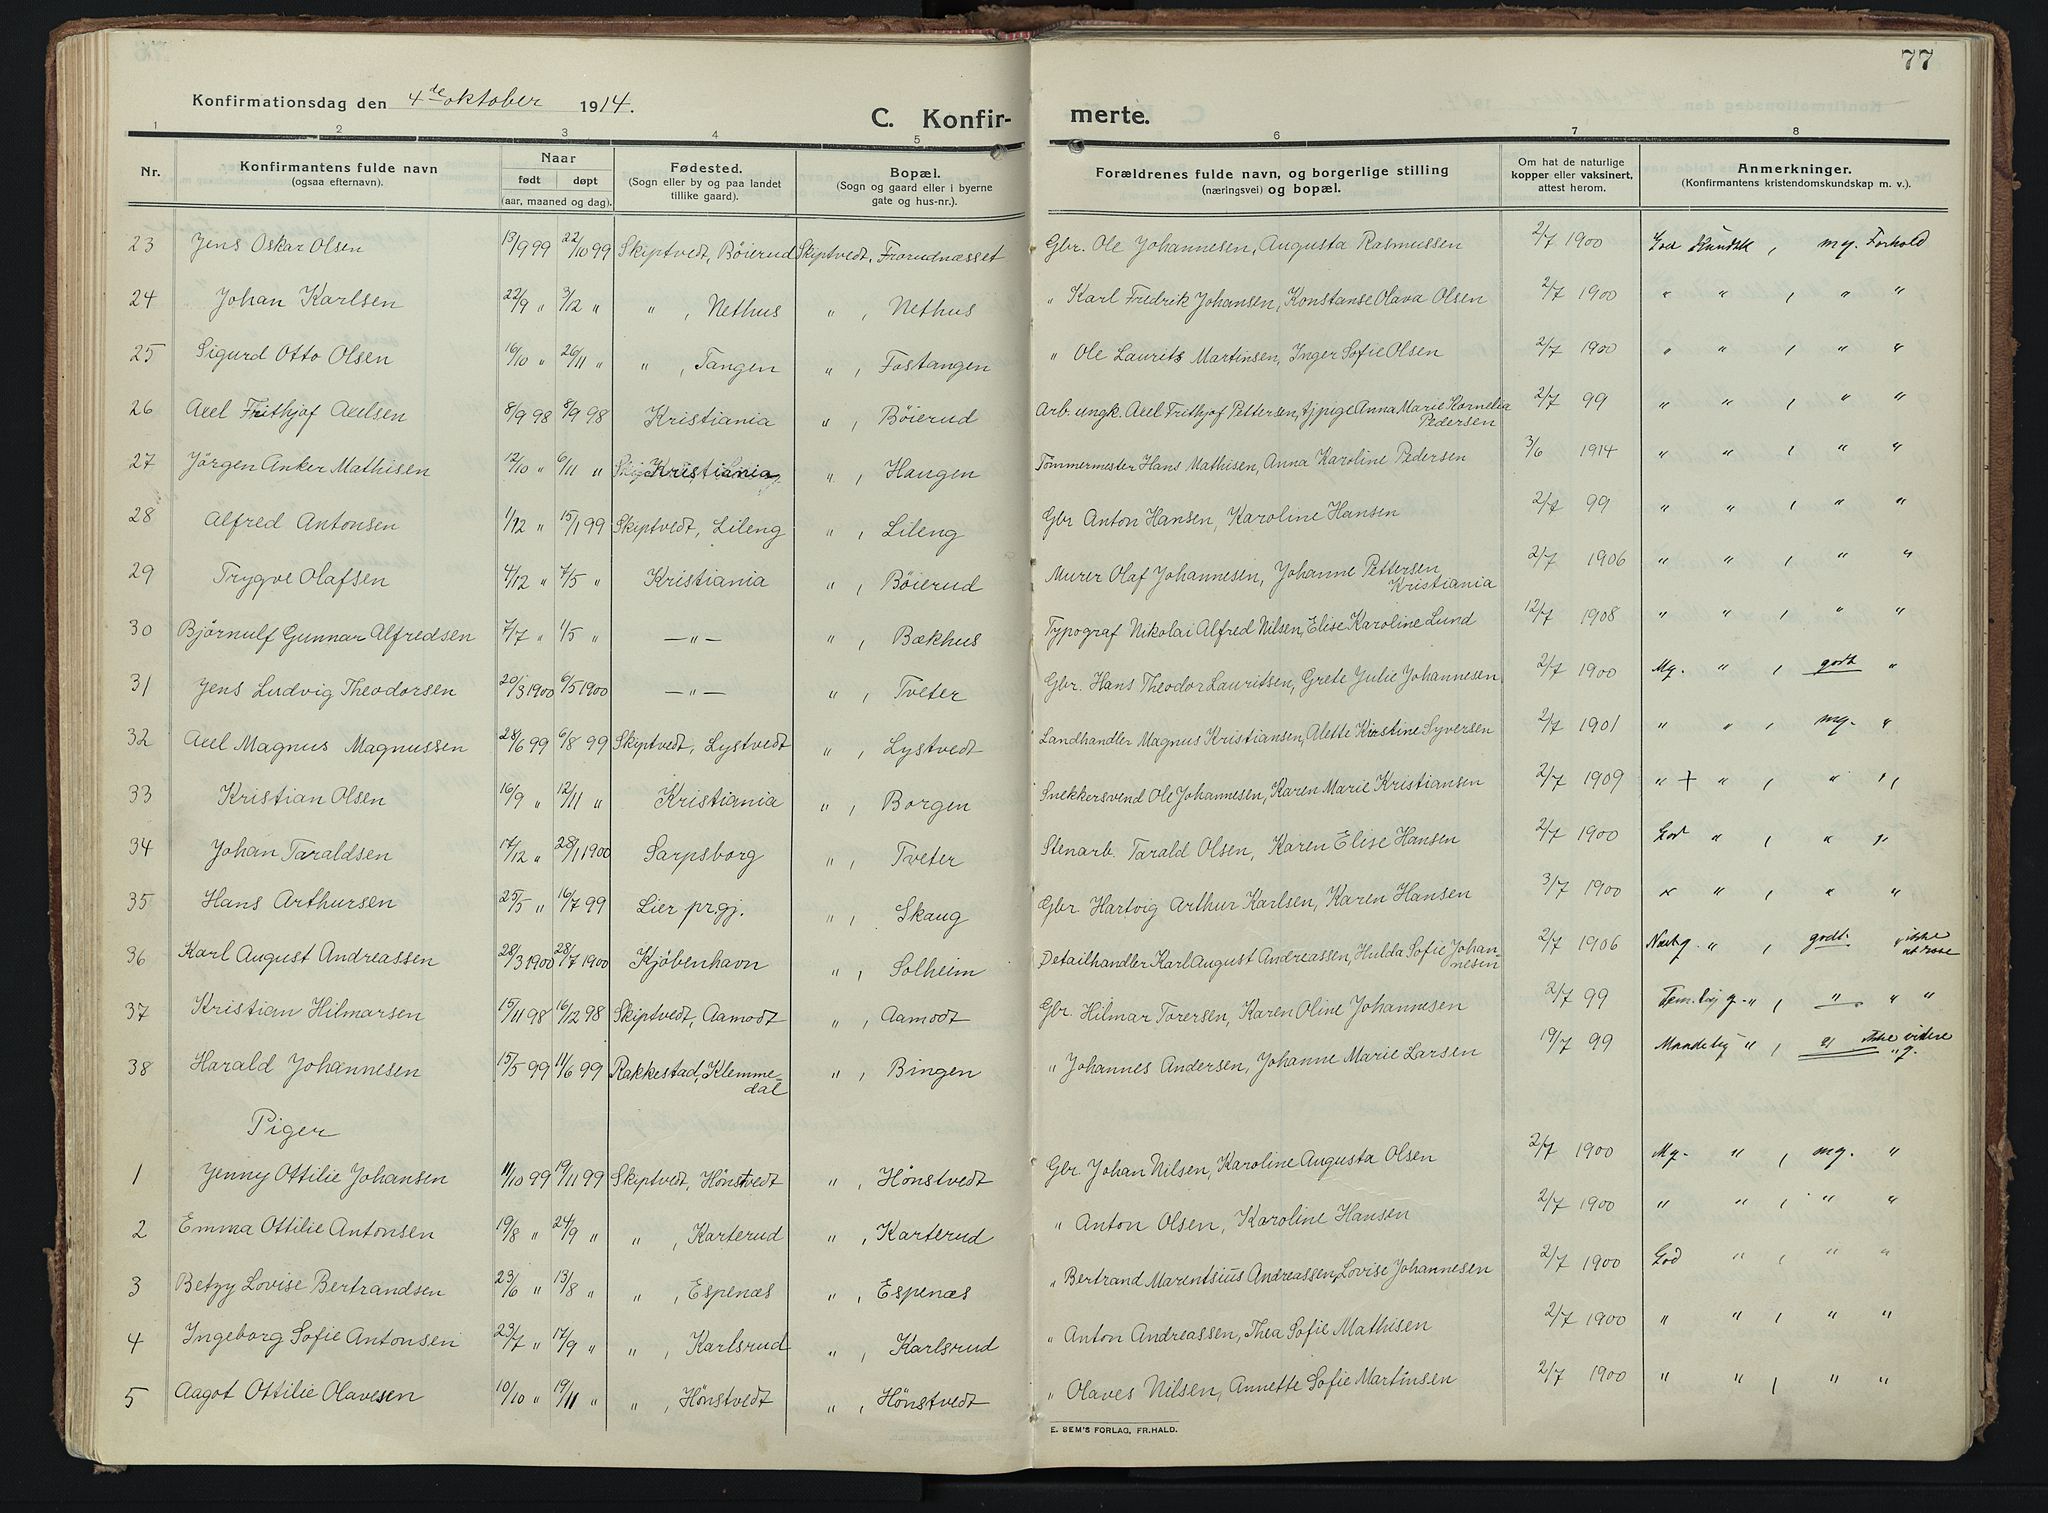 77
Konfirmationsdag den 4de oktober 1914.
C. Konfirmerte.
1 2 3 4 5 6 7 8
Nr. Konfirmantens fulde navn (ogsaa efternavn). Naar født døpt (aar, maaned og dag). Fødested. (Sogn eller by og paa landet tillike gaard). Bopæl. (Sogn og gaard eller i byerne gate og hus-nr.). Forældrenes fulde navn, og borgerlige stilling (næringsvei) og bopæl. Om hat de naturlige kopper eller vaksinert, attest herom. Anmerkninger. (Konfirmantens kristendomskundskap m. v.).
23 Jens Oskar Olsen 13/9 99 22/10 99 Skiptvedt, Bøierud Skiptvedt, Frorudnæsset Gbr. Ole Johannesen, Augusta Rasmussen 2/7 1900 God Kundsk, mg. Forhold
24 Johan Karlsen 22/9 " 3/12 " " , Nethus " , Nethus " Karl Fredrik Johansen, Konstanse Olava Olsen 2/7 1900 " " , " "
25 Sigurd Otto Olsen 16/10 " 26/11 " " , Tangen " , Fostangen " Ole Laurits Martinsen, Inger Sofie Olsen 2/7 1900 " " , " "
26 Axel Frithjof Axelsen 8/9 98 8/9 98 Kristiania " , Bøierud Arb. ungk. Axel Frithjof Pettersen, tjpige Anna Marie Kornelia Pedersen 2/7 99 " " , " "
27 Jörgen Anker Mathisen 12/10 " 6/11 " Kristiania " , Haugen Tømmermester Hans Mathisen, Anna Karoline Pedersen 3/6 1914 " " , " "
28 Alfred Antonsen 1/12 " 15/1 99 Skiptvedt, Lileng " , Lileng Gbr Anton Hansen, Karoline Hansen 2/7 99 " " , " "
29 Trygve Olafsen 4/12 " 7/5 " Kristiania " , Bøierud Murer Olaf Johannesen, Johanne Pettersen Kristiania 2/7 1906 " " , " "
30 Bjørnulf Gunnar Alfredsen 7/7 " 1/5 " — " — " , Bækhus Typograf Nikolai Alfred Nilsen, Elise Karoline Lund 12/7 1908 " " , " "
31 Jens Ludvig Theodorsen 20/3 1900 6/5 1900 — " — " , Tveter Gbr. Hans Theodor Lauritsen, Grete Julie Johannesen 2/7 1900 Mg. " , godt "
32 Axel Magnus Magnussen 28/6 99 6/8 99 Skiptvedt, Lystvedt " , Lystvedt Landhandler Magnus Kristiansen, Alette Kirstine Syversen 2/7 1901 " " , mg. "
33 Kristian Olsen 16/9 " 12/11 " Kristiania " , Borgen Snekkersvend Ole Johannesen, Karen Marie Kristiansen 2/7 1909 " + " , " "
34 Johan Taraldsen 17/12 " 28/1 1900 Sarpsborg " , Tveter Stenarb. Tarald Olsen, Karen Elise Hansen 2/7 1900 God " , " "
35 Hans Arthursen 25/5 " 16/7 99 Lier prgj. " , Skaug Gbr. Hartvig Arthur Karlsen, Karen Hansen 3/7 1900 " " , " "
36 Karl August Andreassen 28/3 1900 28/7 1900 Kjøbenhavn " , Solheim Detailhandler Karl August Andreassen, Hulda Sofie Johannesen 2/7 1906 " , godt.
37 Kristian Hilmarsen 15/11 98 16/12 98 Skiptvedt, Aamodt " , Aamodt Gbr. Hilmar Torersen, Karen Oline Johannesen 2/7 99 " , " " "
38 Harald Johannesen 15/5 99 11/6 99 Rakkestad, Klemmedal " , Bingen " Johannes Andersen, Johanne Marie Larsen 19/7 99 "
Piger
1 Jenny Ottilie Johansen 11/10 99 19/11 99 Skiptvedt, Hønstvedt " , Hønstvedt Gbr Johan Nilsen, Karoline Augusta Olsen 2/7 1900 Mg. " , mg. "
2 Emma Ottilie Antonsen 19/8 " 24/9 " " , Karterud " , Karterud " Anton Olsen, Karoline Hansen 2/7 1900 " " , " "
3 Betzy Lovise Bertrandsen 23/6 " 13/8 " " , Espenæs " , Espenæs " Bertrand Marentsius Andreassen, Lovise Johannesen 2/7 1900 God " , " "
4 Ingeborg Sofie Antonsen 23/7 " 17/9 " " , Karlsrud " , Karlsrud " Anton Andreassen, Thea Sofie Mathisen 2/7 1900 " " , " "
5 Aagot Ottilie Olavesen 10/10 " 19/11 " " , Hønstvedt " , Hønstvedt " Olaves Nilsen, Annette Sofie Martinsen 2/7 1900 " " , " "
E. SEM'S FORLAG, FR.HALD.